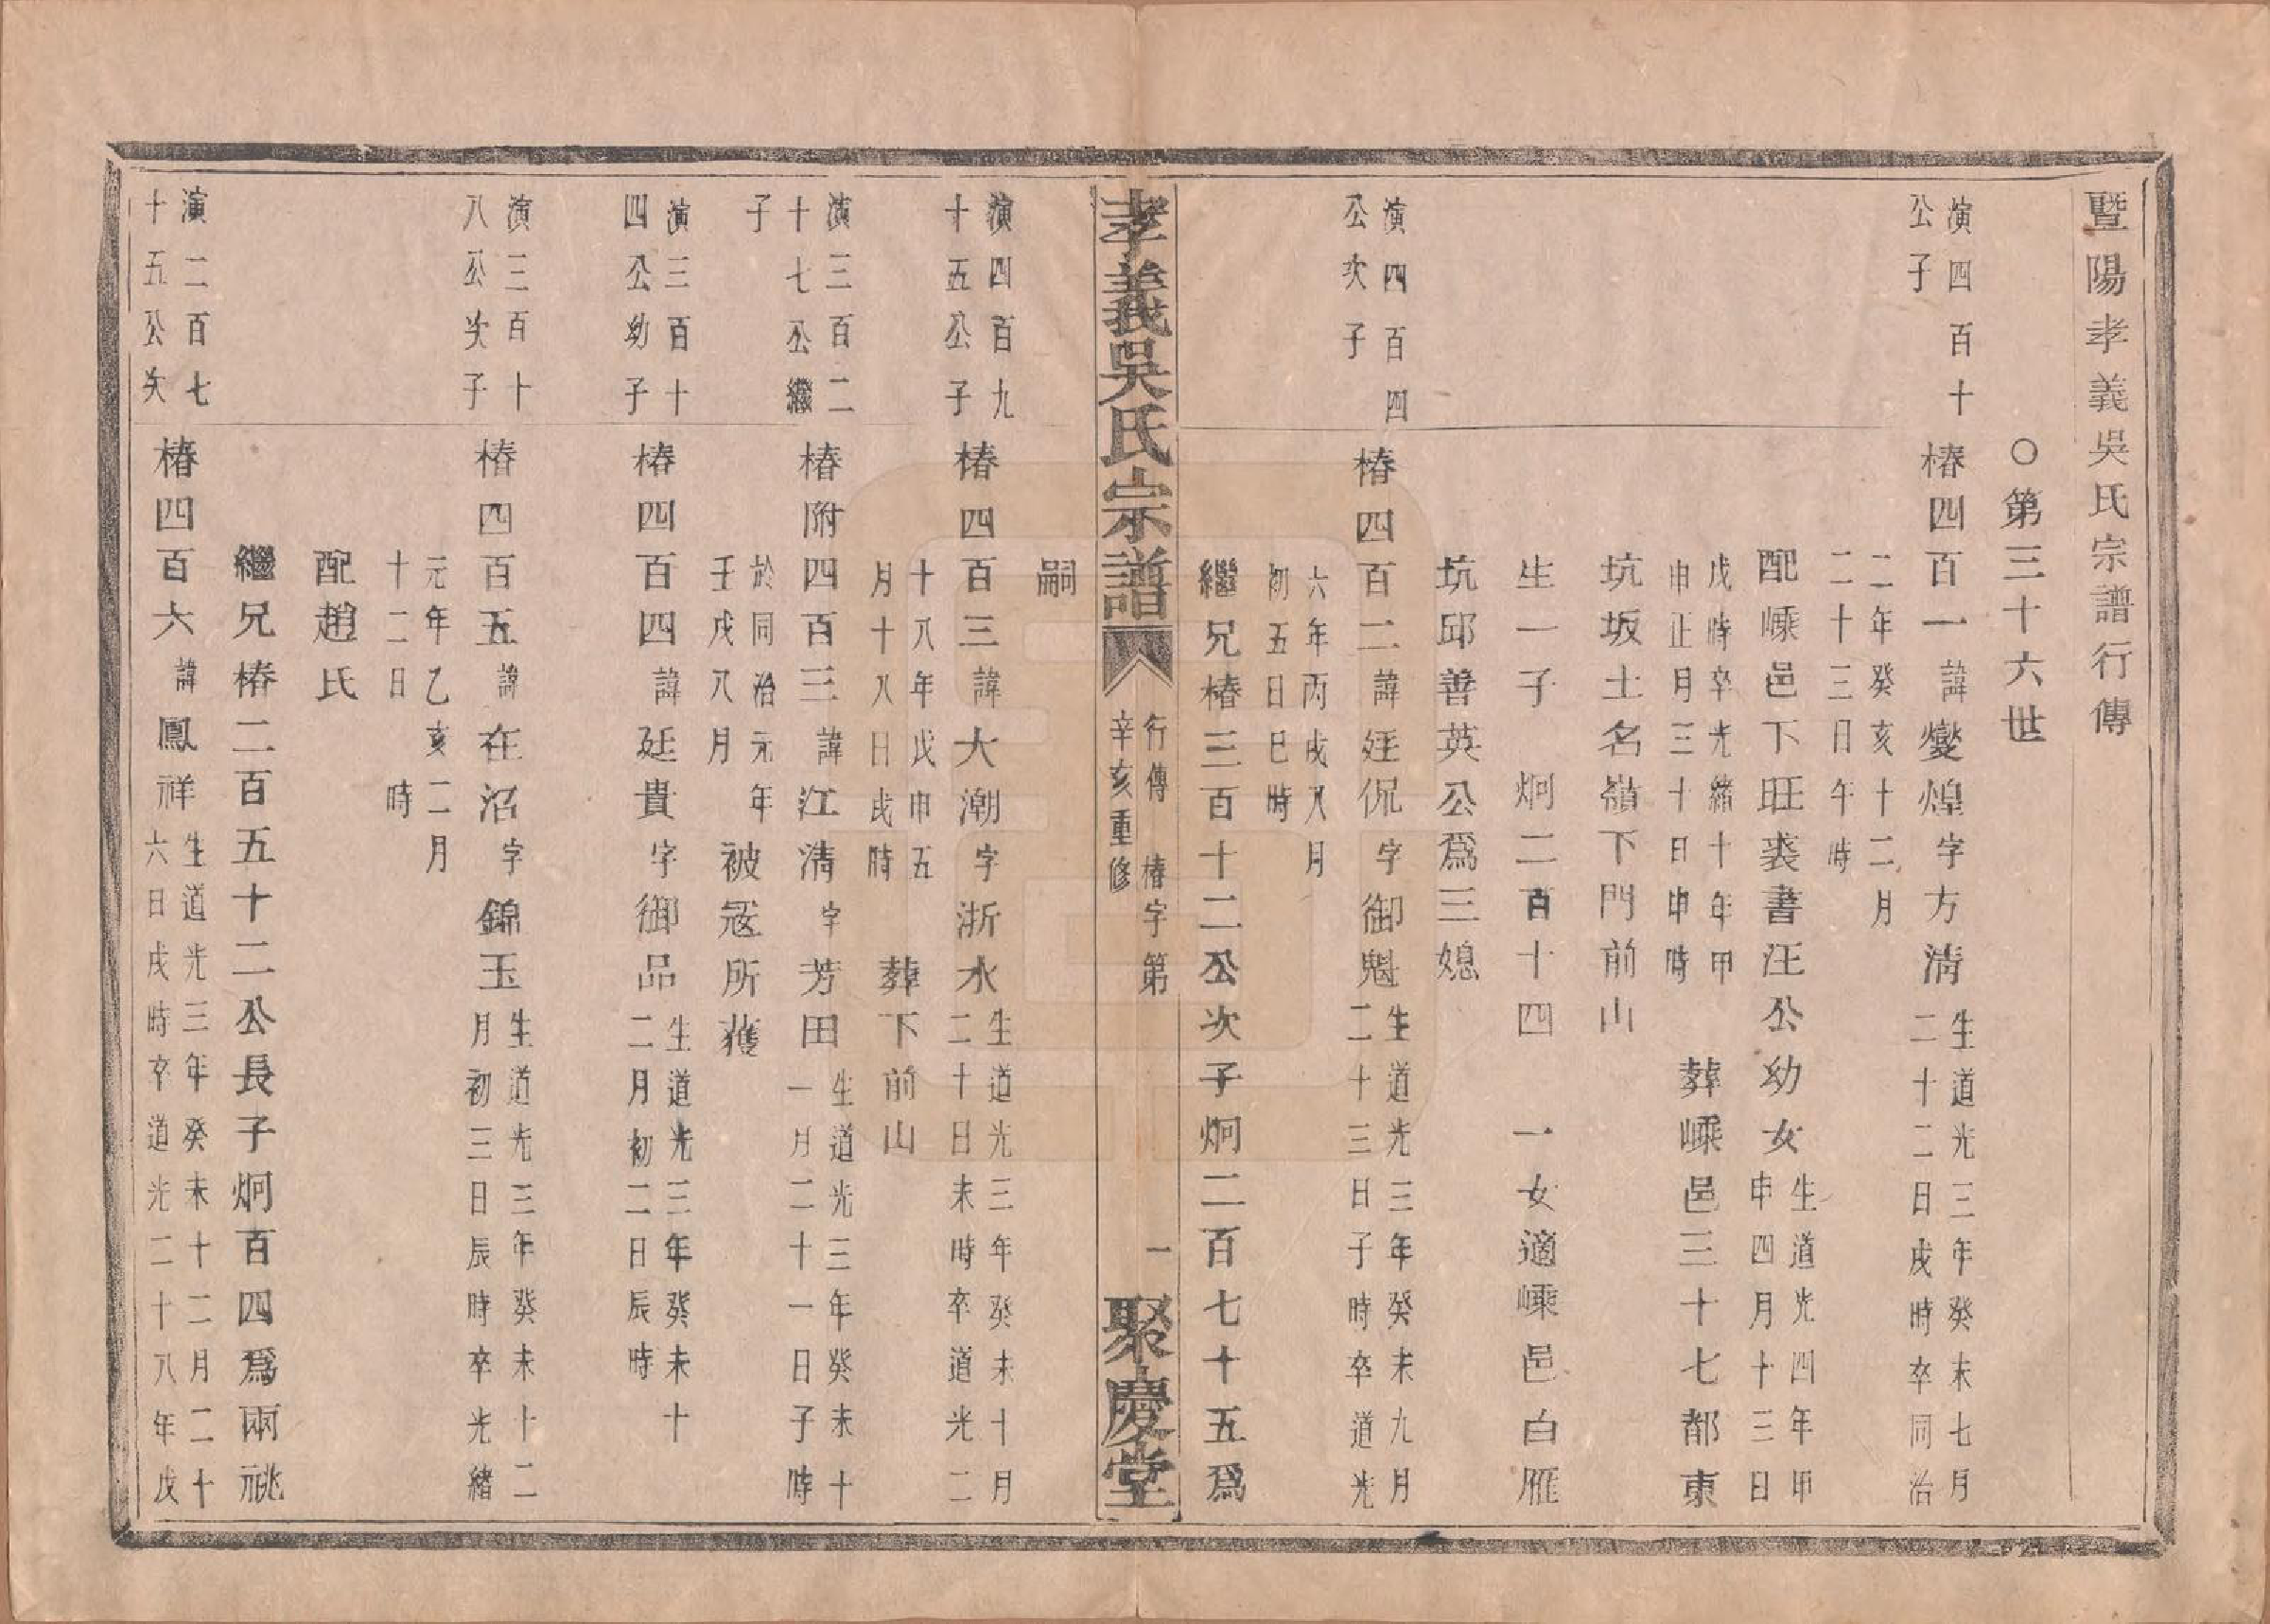 暨陽孝義吳氏宗譜行傳
○第三十六世
演四百十
公子
椿四百一諱燮煌字方清
生道光三年癸未七月
二十二日戌時卒同治
二年癸亥十二月
二十三日午時
配嵊邑下旺裘書汪公幼女
生道光四年甲
申四月十三日
戌時卒光緒十年甲
申正月三十日申時
葬嵊邑三十七都東
坑坂土名嶺下門前山
生一子 炯二百十四 一女適嵊邑白雁
坑邱善英公爲三媳
演四百四
公次子
椿四百二諱廷侃字御魁
生道光三年癸未九月
二十三日子時卒道光
六年丙戌八月
初五日巳時
繼兄椿三百十二公次子炯二百七十五爲
嗣
孝義吳氏宗譜
行傳 椿字第 一
辛亥重修
聚慶堂
演四百九
十五公子
椿四百三諱大潮字浙水
生道光三年癸未十月
二十日未時卒道光二
十八年戊申五
月十八日戌時
葬下前山
演三百二
十七公繼
子
椿附四百三諱江清字芳田
生道光三年癸未十
一月二十一日子時
於同治元年
壬戌八月
被寇所獲
演三百十
四公幼子
椿四百四諱廷貴字御品
生道光三年癸未十
二月初二日辰時
演三百十
八公次子
椿四百五諱在沼字錦玉
生道光三年癸未十二
月初三日辰時卒光緒
元年乙亥二月
十二日 時
配趙氏
繼兄椿二百五十二公長子炯百四爲兩祧
演二百七
十五公次
椿四百六諱鳳祥
生道光三年癸未十二月二十
六日戌時卒道光二十八年戊